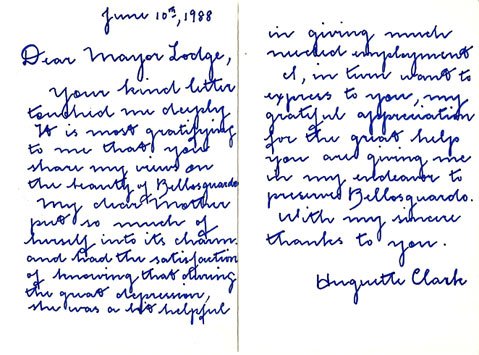 June 10th, 1988
Dear Mayor Lodge,
Your kind letter
touched me deeply
It is most gratifying
to me that you
share my views on
the beauty of Bellosguardo
My dear Mother
put so much of
herself into its charm
and had the satisfaction
of knowing that during
the great depression,
she was a bit helpful
in giving much
needed employment
I, in turn want to
express to you, my
grateful appreciation
for the great help
you are giving me
in my endeavor to
preserve Bellosguardo.
With my sincere
thanks to you.
Huguette Clark